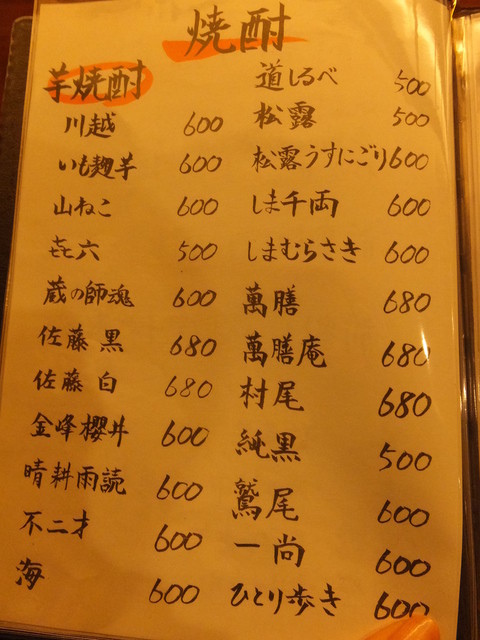 焼酎
芋焼酎
川越 600
いも麹芋 600
山ねこ 600
㐂六 500
蔵の師魂 600
佐藤 黒 680
佐藤 白 680
金峰櫻井 600
晴耕雨読 600
不二才 600
海 600
道しるべ 500
松露 500
松露うすにごり 600
しま千両 600
しまむらさき 600
萬膳 680
萬膳庵 680
村尾 680
純黒 500
鷲尾 600
一尚 600
ひとり歩き 600